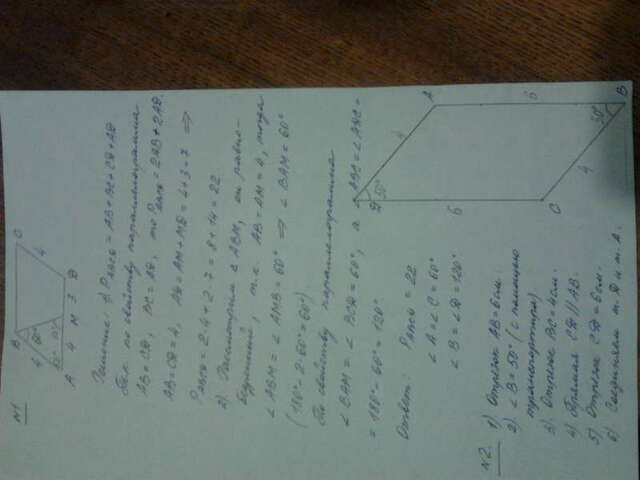 N1
B
C
4
60°
4
60°
A 4 M 3 D
Решение: 1) PABCD = AB+BC+CD+AD
по свойству параллелограмма
AB=CD, BC=AD, то PABCD = 2AB+2AD.
AB=CD=4, AD=AM+MD=4+3=7 ⇒
PABCD = 2·4+2·7=8+14=22
2) Рассмотрим Δ ABM, он равно-
бедренный, т.к. AB=AM=4, тогда
∠ABM = ∠AMB = 60° ⇒ ∠BAM = 60°
(180°-2·60°=60°).
По свойству параллелограмма
∠BAM = ∠BCD = 60°, а ∠ABC = ∠ADC =
= 180°-60° = 120°
Ответ: PABCD = 22
∠A = ∠C = 60°
∠B = ∠D = 120°
A
6
B
50°
4
4
50°
D
6
C
N2.
1) Отрезок AB=6см.
2) ∠B=50° (с помощью
транспортира)
3) Отрезок BC=4см.
4) Прямая CD // AB.
5) Отрезок CD=6см.
6) Соединяем т. D и т. A.